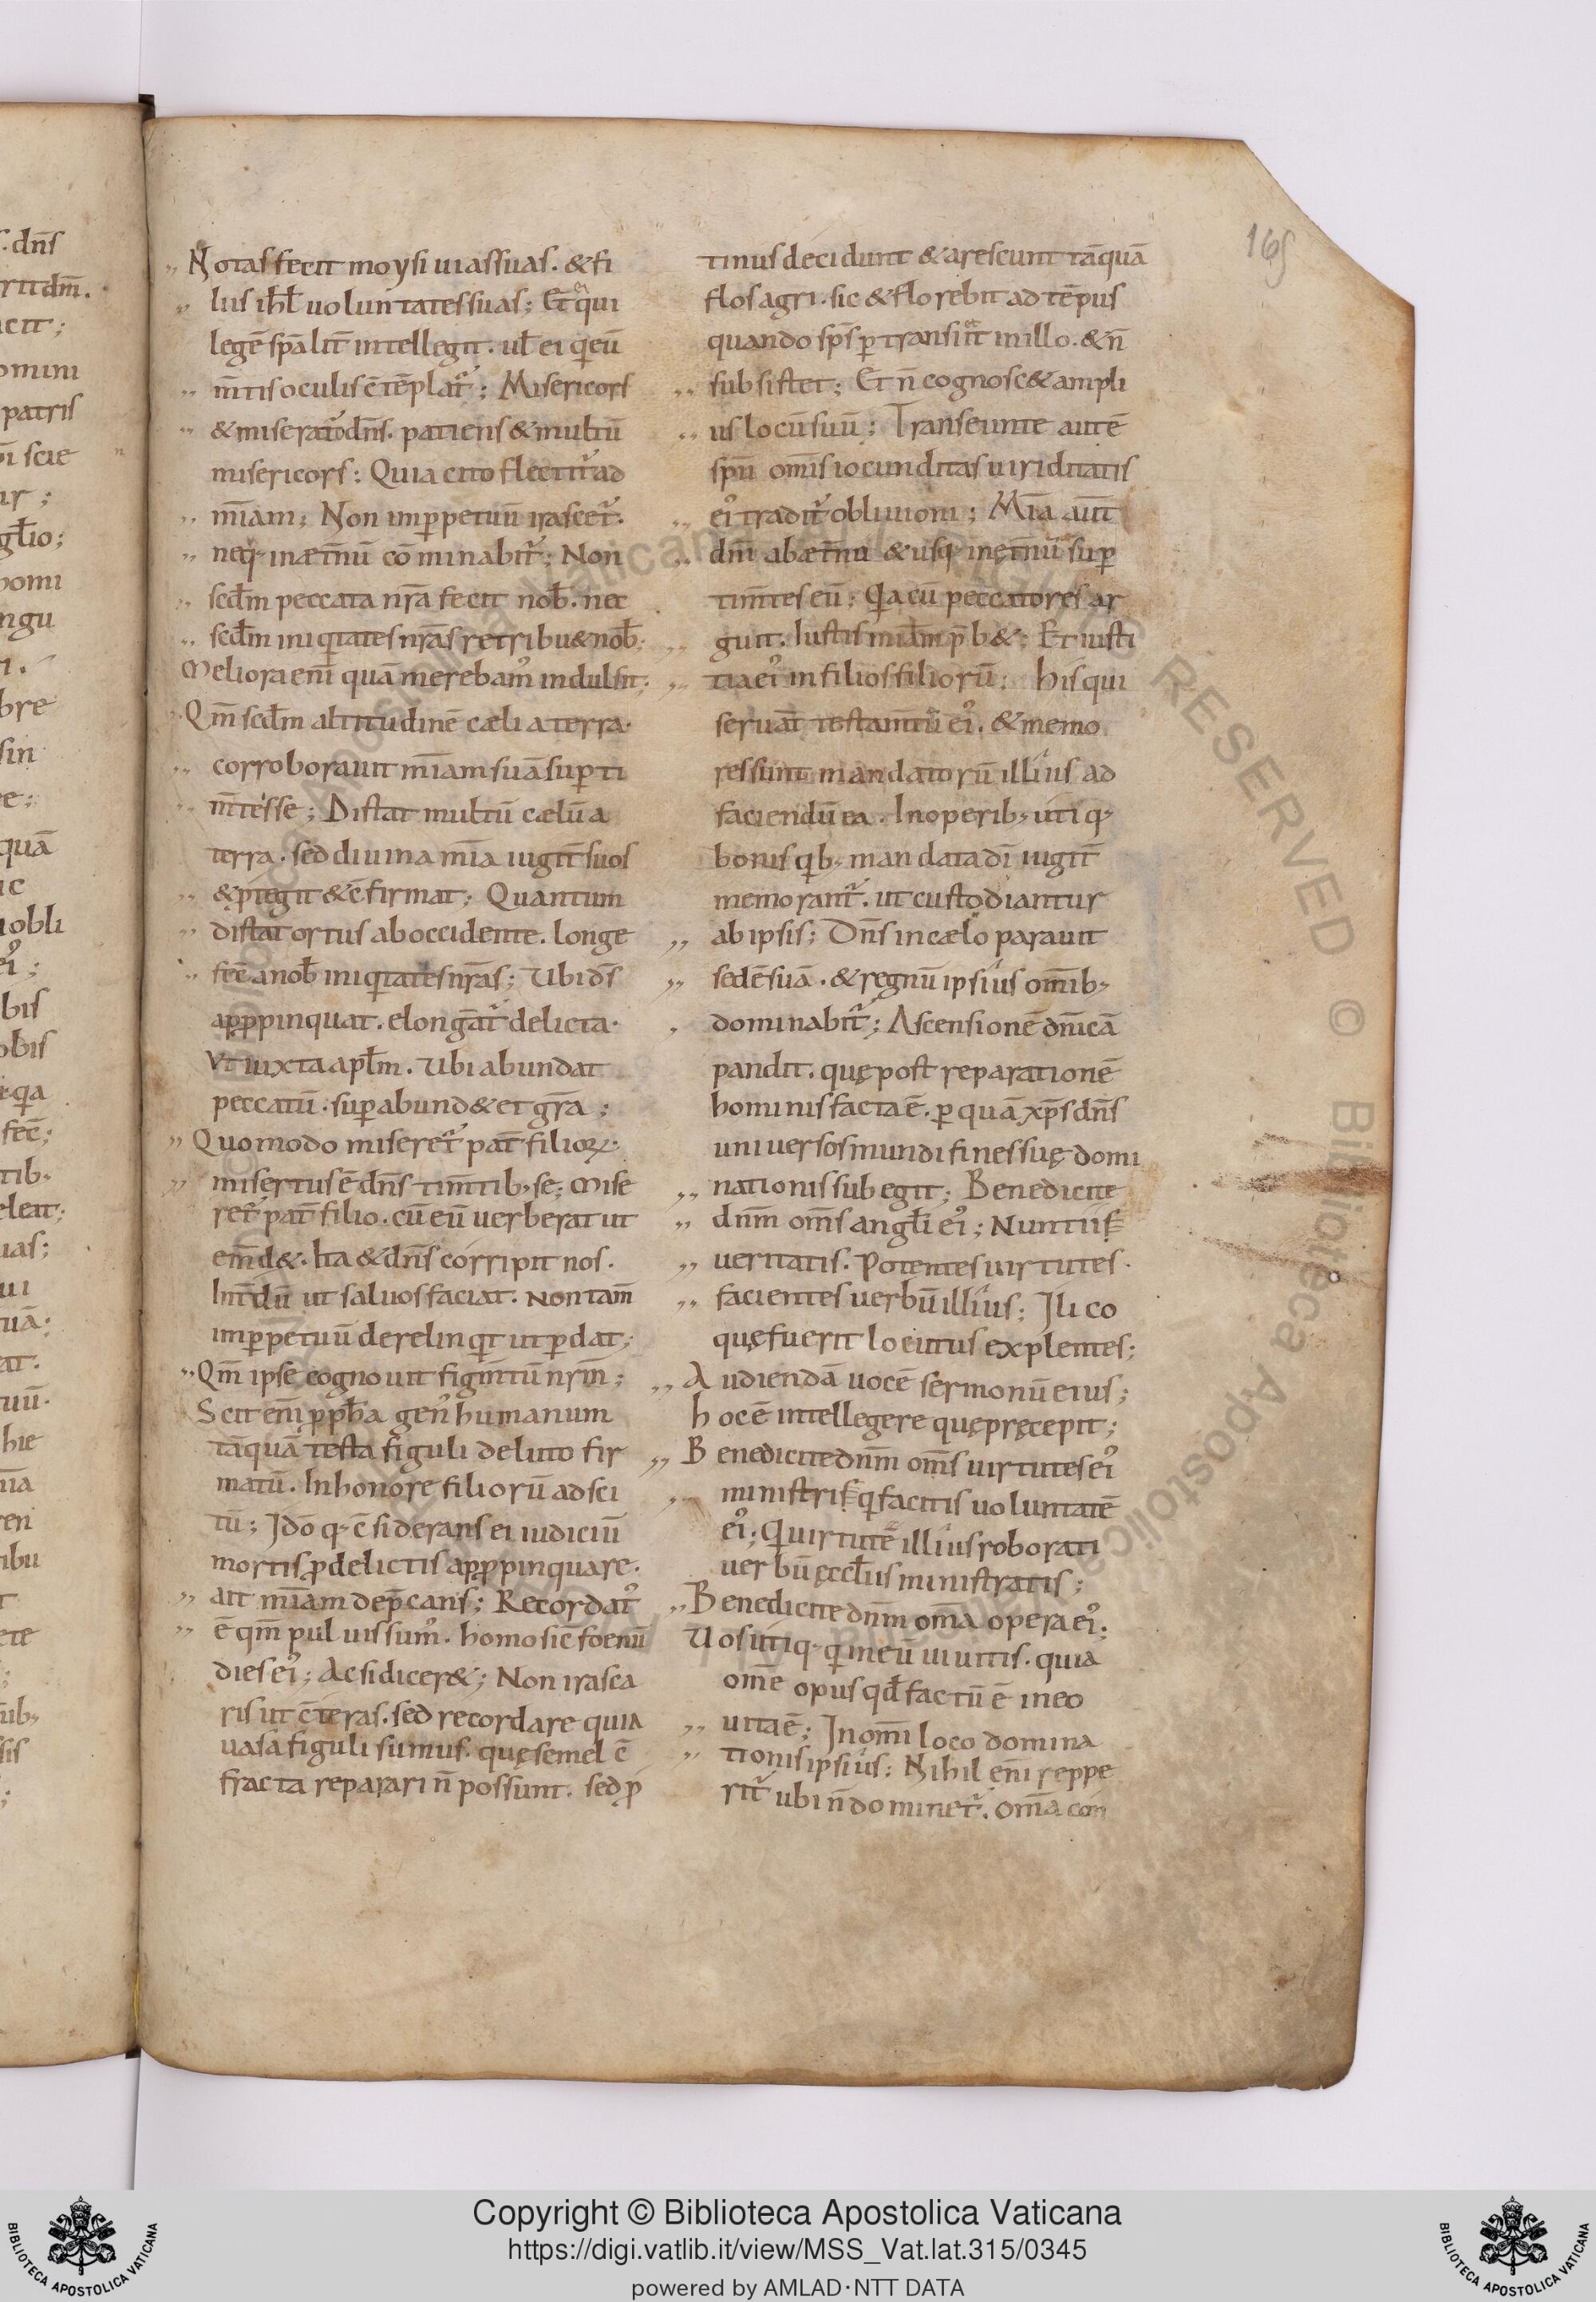 165
Notas fecit moysi uias suas. & fi
lius ihł uoluntates suas; Et ei qui
legē spālit̄ intellegit. uł ei qi eū
m̄tis oculis c̄tēplat᷒; Misericors
& miserat᷒ dn̄s. patiens & multū
misericors: Quia cito flectit᷒ ad
mīam; Non inꝑpetuū irascet᷒.
neq· in æt̄nū cōminabit᷒; Non
scđm peccata nr̄a fecit nob̄. nec
scđm iniqitates nr̄as retribu& nob̄;
Meliora enī quā merebam᷒ indulsit;
Qm̄ scđm altitudinē cæli a terra·
corroborauit mīam suā suꝑ ti
m̄tes se; Distat multū cælū a
terra. sed diuina mīa iugit̄ suos
& ꝓtegit & c̄firmat; Quantum
distat ortus ab occidente. longe
fec̄ a nob̄ iniqitates nr̄as; Ubi dš
apꝓpinquat. elongat᷒ delicta·
Vt iuxta apłm. Ubi abundat
peccatū. suꝑabund& et gr̄a;
Quomodo miseret᷒ pat̄ filioꝝ·
misertus ē dn̄s tim̄tib, se; Mise
ret᷒ pat̄ filio. cū eū uerberat ut
em̄d&. Ita & dn̄s corripit nos.
Int̄dū ut saluos faciat. Non tam̄
inꝑpetuū derelinqit ut ꝑdat;
Qm̄ ipse cognouit figm̄tū nr̄m;
Scit enī ꝓph̄a gen᷒ humanum
tāquā testa figuli de luto fir
matū. In honore filiorū adsci
tū; Idō q· c̄siderans ei iudiciū
mortis ꝓ delictis apꝓpinquare.
ait mīam dep̄cans; Recordat᷒
ē qm̄ puluis sum᷒. homo sic̄ foenū
dies ei᷒; Ac si dicer&; Non irasca
ris ut c̄teras. sed recordare quia
uasa figuli sumus. quę semel c̄
fracta reparari n̄ possunt. sed ꝓ
tinus decidunt & arescunt tāquā
flos agri. sic & florebit ad tēpus
quando sps̄ ꝑtransit in illo. & n̄
subsistet; Et n̄ cognosc& ampli
us locū suū; Transeunte autē
spū omīs iocunditas uiriditatis
ei᷒ tradit᷒ obliuioni; Mīa aut̄
dm̄ ab æt̄nu & usq· in ęt̄nū suꝑ
tim̄tes eū; Qia cū peccatores ar
guit. Iustis p̄b&; Et iusti
tia ei᷒ in filios filiorū; His qui
seruāt testam̄tū ei᷒. & memo
res sunt mandatorū illius ad
faciendū ea. In operib, utiq·
bonis qib, mandata dī iugit̄
memorant᷒. ut custodiantur
ab ipsis; Dn̄s in cælo parauit
sedē suā. & regnū ipsius om̄ib,
dominabit᷒; Ascensionē dn̄icā
pandit. quę post reparationē
hominis facta ē. ꝑ quā xps̄ dn̄s
uniuersos mundi fines suę domi
nationis subegit; Benedicite
dnm̄ om̄s angłi ei᷒; Nuntii s̄
ueritatis. Potentes uirtutes.
facientes uerbū illius; Ilico
quę fuerit locutus explentes;
Audiendā uocē sermonū eius;
hoc ē intellegere quę pręcepit;
Benedicite dnm̄ om̄s uirtutes ei᷒
ministri s̄ qi facitis uoluntatē
ei᷒; Qi uirtutē illius roborati
uerbū ęccłius ministratis;
Benedicite dnm̄ om̄a opera ei᷒;
Uos utiq· qi in eū uiuitis. quia
om̄e opus qđ factū ē in eo
uita ē; In om̄i loco domina
tionis ipsius; Nihil enī reppe
rit᷒ ubi n̄ dominet᷒. Om̄a con
Copyright © Biblioteca Apostolica Vaticana
https://digi.vatlib.it/view/MSS_Vat.lat.315/0345
powered by AMLAD·NTT DATA